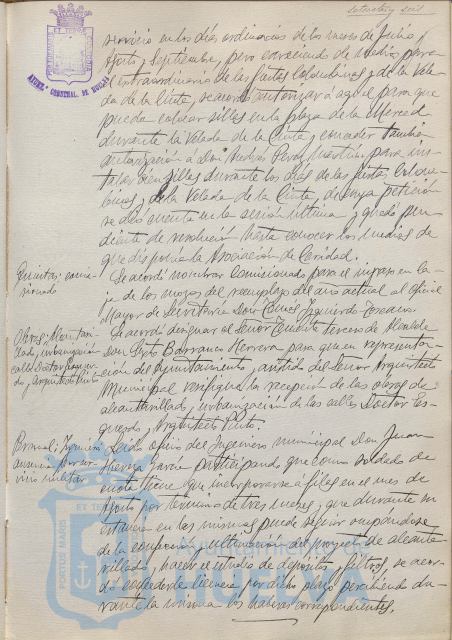 servicio en los días ordinarios de los meses de Julio,
Agosto y Septiembre, pero careciendo de medios para
el extraordinario de las fiestas Colombinas y de la Vela-
da de la Cinta, se acordó autorizar a aquel para que
pueda colocar sillas en la plaza de la Merced
durante la Velada de la Cinta, y conceder también
autorización a Don Andrés Peral Martín para ins-
talar cien sillas durante los días de las fiestas Colom-
binas y de la Velada de la Cinta, de cuya petición
se dió cuenta en la sesión última y quedó pen-
diente de resolución hasta conocer los medios de
que disponía la Asociación de Caridad.
Quintas; comi-
sionado
Se acordó nombrar Comisionado para el ingreso en Ca-
ja de los mozos del reemplazo del año actual al Oficial
Mayor de Secretaría Don Izquierdo
Obras; Alcantari-
llado y urbanización
calles Doctor Esquer-
do y Arquitecto Pinto
Se acordó designar al Señor Teniente tercero de Alcalde
Don Sixto Barranco Herrera para que en representa-
ción del Ayuntamiento, asistido del Señor Arquitecto
Municipal verifique la recepción de las obras de
alcantarillado y urbanización de las calles Doctor Es-
querdo y Arquitecto Pinto.
Personal; Ingeniero
ausencia por ser-
vicio militar
Leido oficio del Ingeniero municipal Don Juan
Hervza García participando que como soldado de
cuota tiene que incorporarse a filas en el mes de
Agosto por término de tres meses, y que durante su
estancia en las mismas puede seguir ocupándose
de la confección y ultimación del proyecto de alcanta-
rillado, y hacer el estudio de depósitos y filtros, se acor-
dó concederle licencia por dicho plazo percibiendo du-
rante la misma los haberes correspondientes.
AYUNT. CONSTNAL. DE HUELVA
PORTUS MARIS ET TERRAE CUSTODIA
Ayuntamiento de
HUELVA